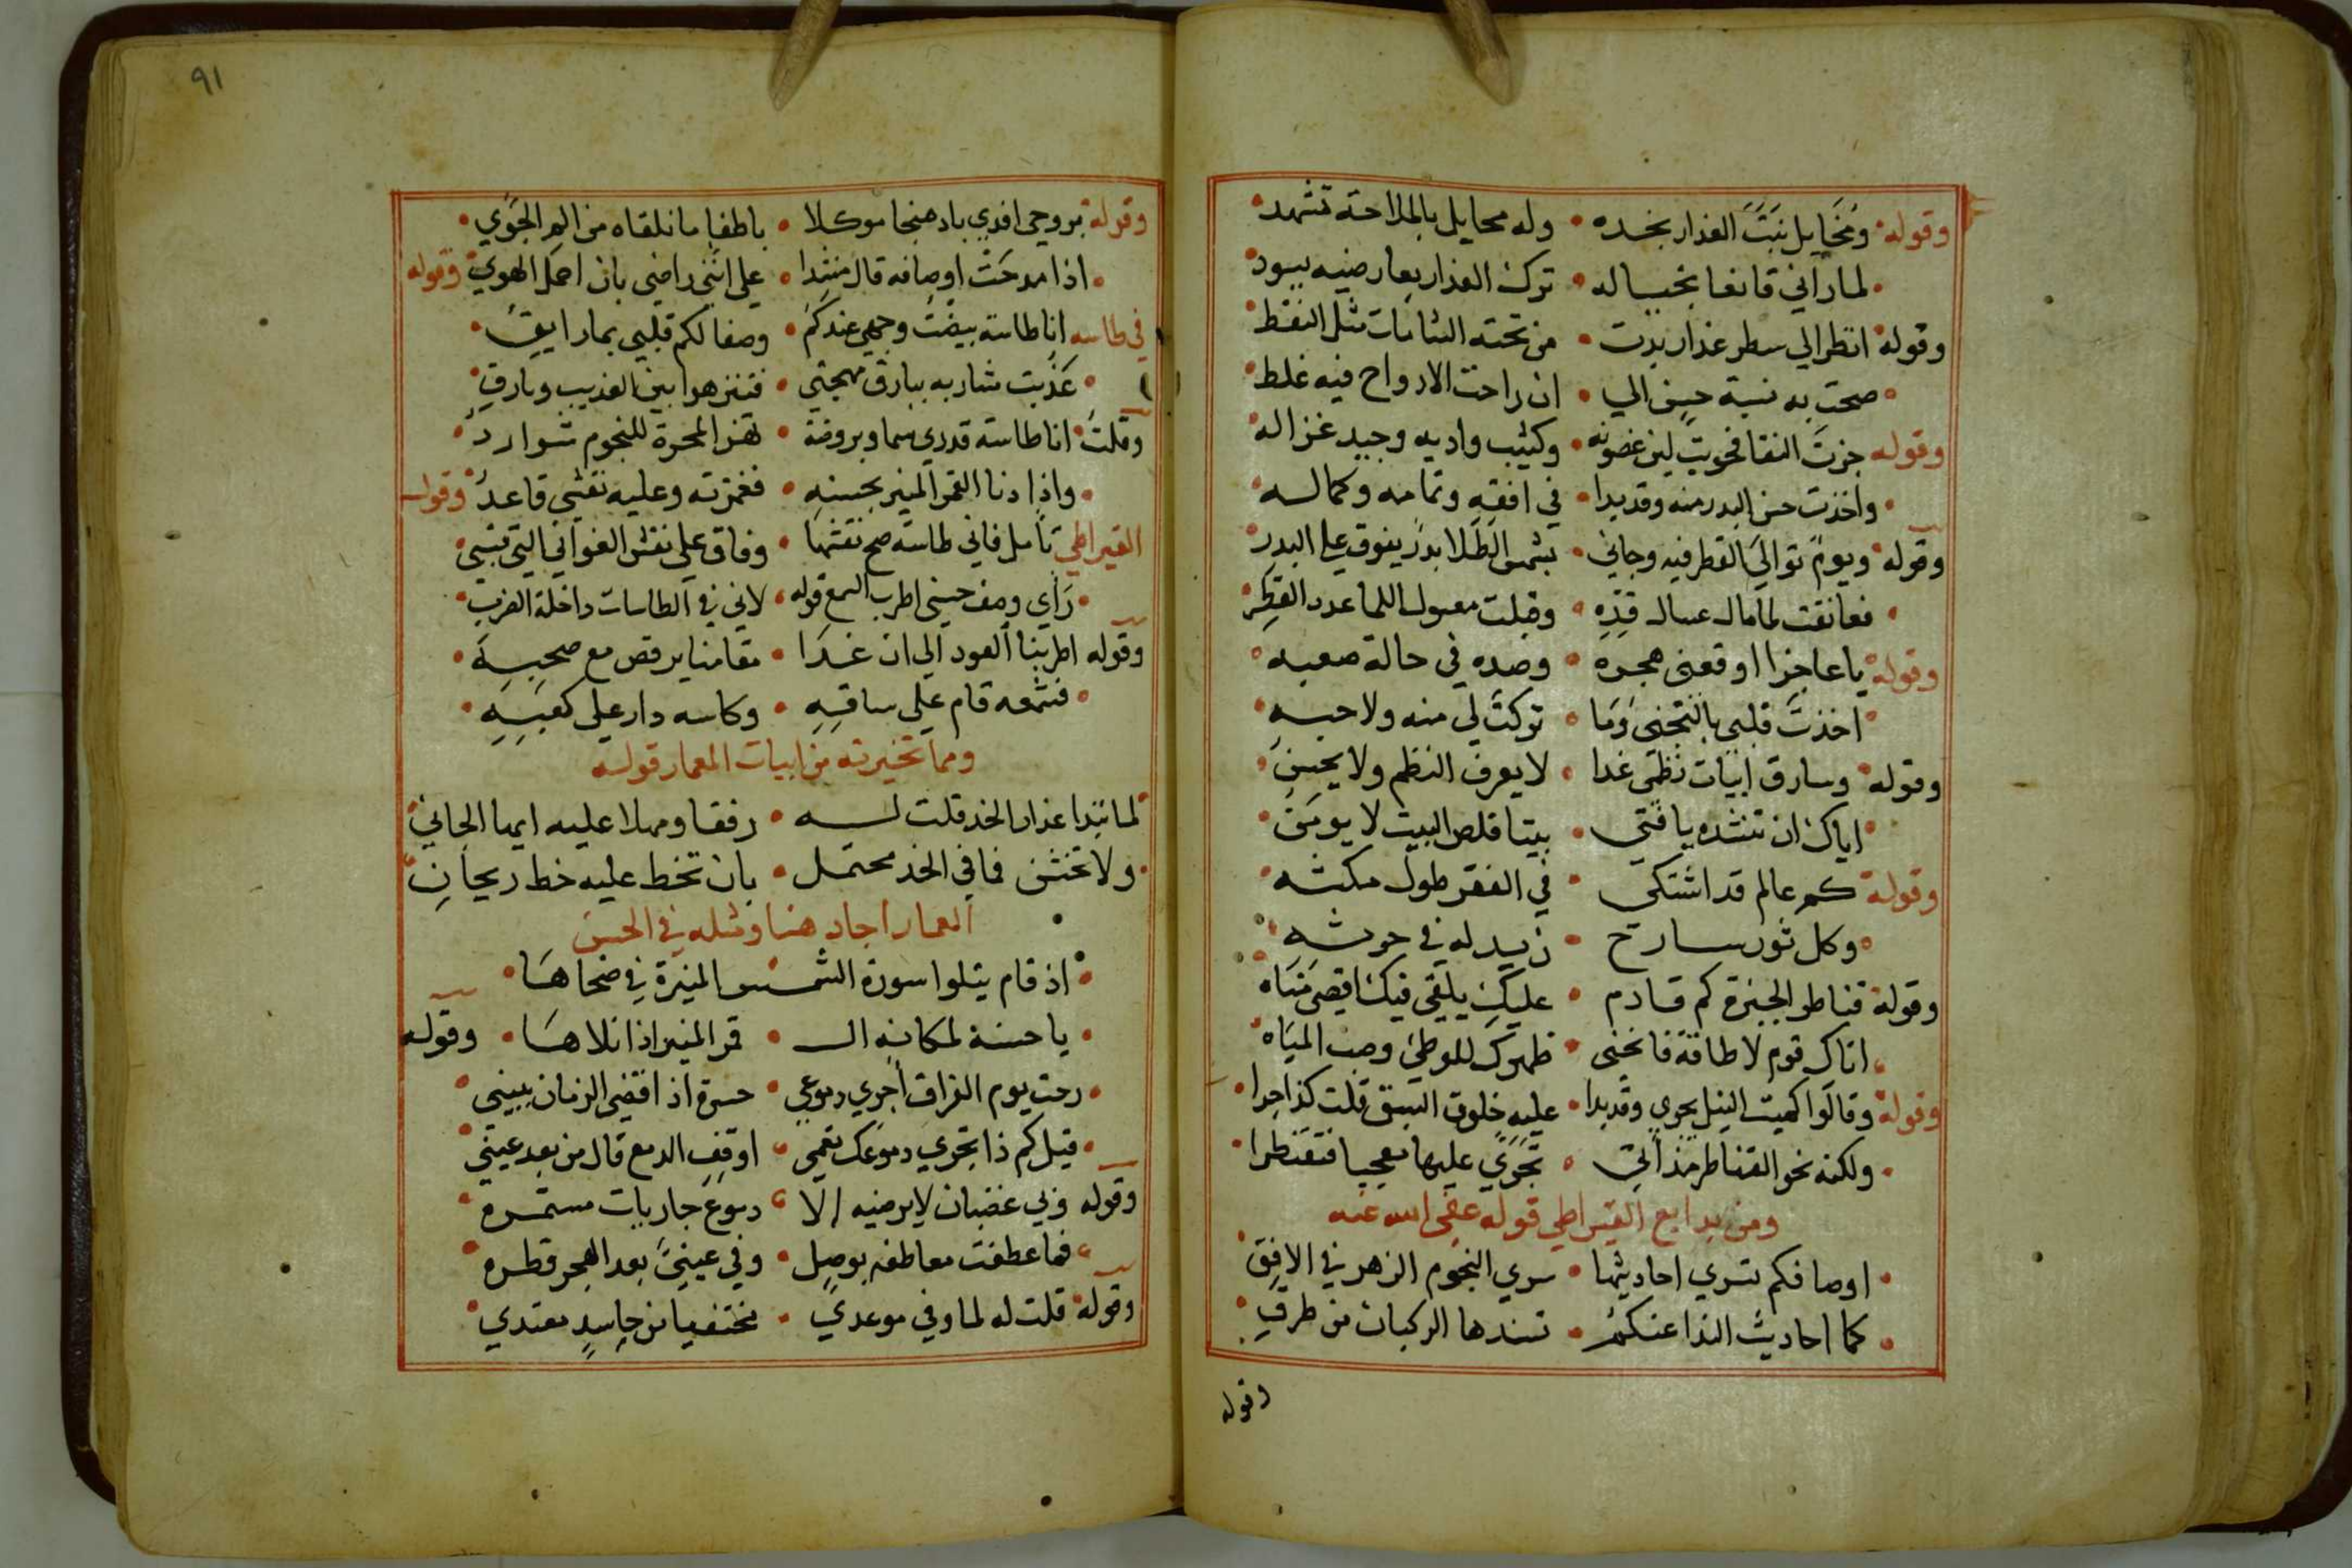 وقوله ومخايل نبت العذار بخده • وله مخايل بالملاحة تشهد
لما رآني قانعا بخياله • ترك العذار بعارضيه يسود
وقوله انظر الي سطر عذار بدت • من تحته الشامات مثل النقط
صحت به نسبة حسن الي • ان راحت الارواح فيه غلط
وقوله جزت النقا فحويت لين غصونه • وكثيب واديه وجيد غزاله
واخذت حسن البدر منه وقد بدا • في افقه وتمامه وكماله
وقوله ويوم توالي القطر فيه وجاني • بشمس الطلا بدر يفوق علي البدر
فعانقت لما مال عسال قده • وقبلت معسول اللما عدد القطر
وقوله يا عاجزا اوقعني هجره • وصده في حالة صعبه
اخذت قلبي بالتجني وما • تركت لي منه ولا حبه
وقوله وسارق ابيات نظمي غدا • لا يعرف النظم ولا يحسن
اياك ان تنشده يا فتي • بيتا فلص البيت لا يومن
وقوله كم عالم قد اشتكي • في الفقر طول مكثه
وكل ثور سارح • زيد له في حرثه
وقوله قناطر الجيزة كم قادم • عليك يلقي فيك اقصي مناه
اتاك قوم لا طاقة فانحني • ظهرك للوطئ وصب المياه
وقوله وقالوا كميت النيل يجري وقد بدا • عليه خلوق السبق قلت كذا جرا
ولكنه نحو القناطر مذ اتي • تجري عليها معجبا فتقنطرا
ومن بدايع القيراطي قوله عفي الله عنه
اوصافكم تسري احاديثها • سري النجوم الزهر في الافق
كما احاديث الندا عنكم • تسندها الركبان من طرق
وقوله
٩١
وقوله بروحي افدي بادهنجا موكلا • باطفا ما نلقاه من الم الجوي
اذا مدحت اوصافه قال منشدا • علي انني راضي بان احمل الهوي وقوله
في طاسه انا طاسة بيضت وجهي عندكم • وصفا لكم قلبي بما رايق
عذبت مشاربه ببارق مهجتي • فتنزهوا بين العذيب وبارق
وقلت انا طاسة قدري سما وبروضة • نهر المجرة للنجوم شوارد
واذا دنا القمر المنير بحسنه • فغمزته وعليه نقشي قاعد وقول
القيراطي تامل فاني طاسة صح نقشها • وفاق علي نقش الغواني التي تسبي
راي وصف حسني اطرب السمع قوله • لاني في الطاسات داخلة الضرب
وقوله اطربنا العود الي ان غدا • مقامنا يرقص مع صحبه
فشمعه قام علي ساقه • وكاسه دار علي كعبه
ومما تخيرته من ابيات المعمار قوله
لما تبدا عذار الخد قلت له • رفقا ومهلا عليه ايها الجاني
ولا تخشن فما في الخد محتمل • بان تخط عليه خط ريحان
المعمار اجاد هنا ومثله في الحسن
اذ قام يتلوا سورة الشمس المنيرة في ضحاها
يا حسنة لمكانه ال • قمر المنير اذا تلاها • وقوله
رحت يوم الفراق اجري دموعي • حسرة اذ اقضي الزمان ببيني
قيل كم ذا تجري دموعك تعمي • اوقف الدمع قال من بعد عيني
وقوله وبي غضبان لا يرضيه الا • دموع جاريات مستمره
فما عطفت معاطفه بوصل • وفي عيني بعد الهجر قطره
وقوله قلت له لما وفي موعدي • مختفيا من حاسد معتدي